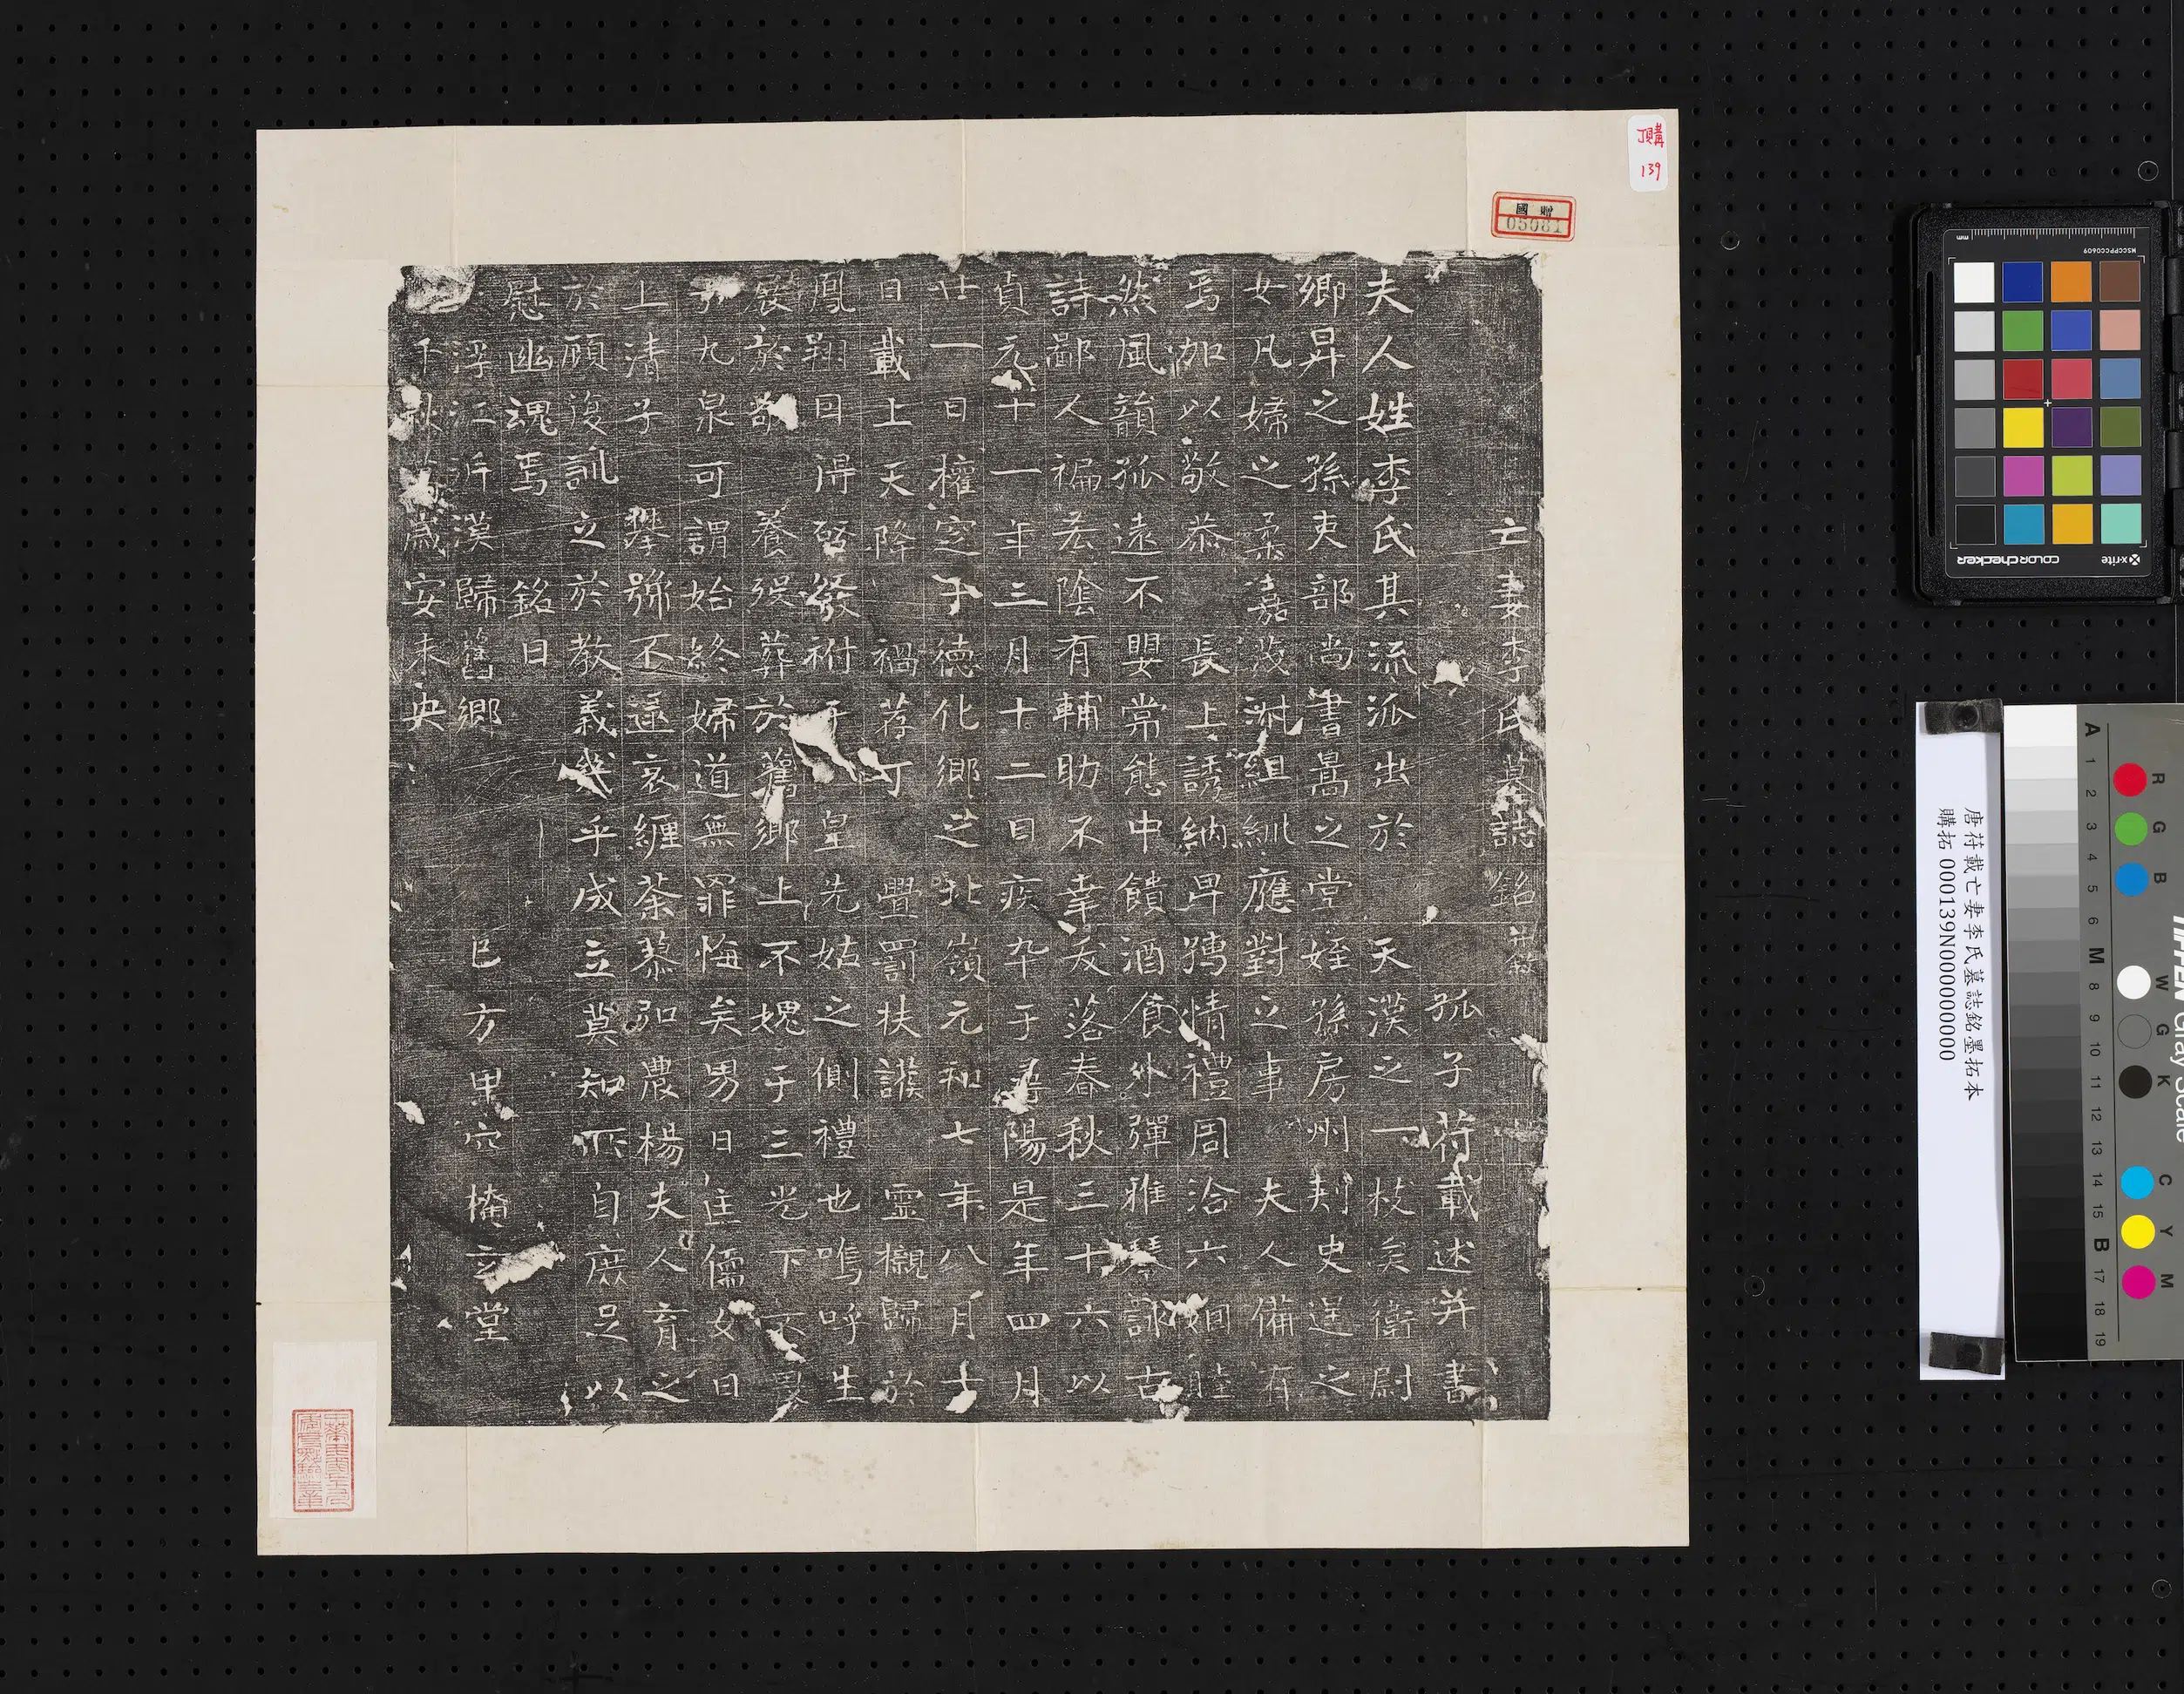 亡妻李氏墓誌銘并敘
孤子符載述并書
夫人姓李氏其流派出於天漢之一枝矣衛尉
卿昇之孫吏部尚書暠之堂姪孫房州刺史逞之
女凡婦之柔嘉茂淑組紃應對立事夫人備有
焉加以敬恭長上誘納卑孺情禮周洽六姻睦
然風韻孤遠不嬰常態中饋酒食外彈雅琴詠古
詩鄙人褊忞陰有輔助不幸夭落春秋三十六以
貞元十一年三月十二日疾卒于潯陽是年四月
廿一日權窆于德化鄉之北嶺元和七年八月十
日載上天降禍荐丁舋罰扶護靈櫬歸於
鳳翔因得啓發祔于皇先姑之側禮也嗚呼生
展於敬養歿葬於舊鄉上不媿于三光下不畏
于九泉可謂始終婦道無罪悔矣男曰匡儒女曰
上清子攀號不逮哀纏荼慕弘農楊夫人育之
於顧復訓立於教義幾乎成立莫知所自庶足以
慰幽魂焉銘曰
浮江泝漢歸舊鄉巳方黑穴掩玄堂
千秋萬歲安未央
頂購
139
國贈
05081
唐符載亡妻李氏墓誌銘墨拓本
購拓 000139N000000000
mm
MSCCPPCC0609
x-rite
COLORCHECKER
Gray Scale
R G B W G K C Y M
A 1 2 3 4 5 6 M 8 9 10 11 12 13 14 15 B 17 18 19